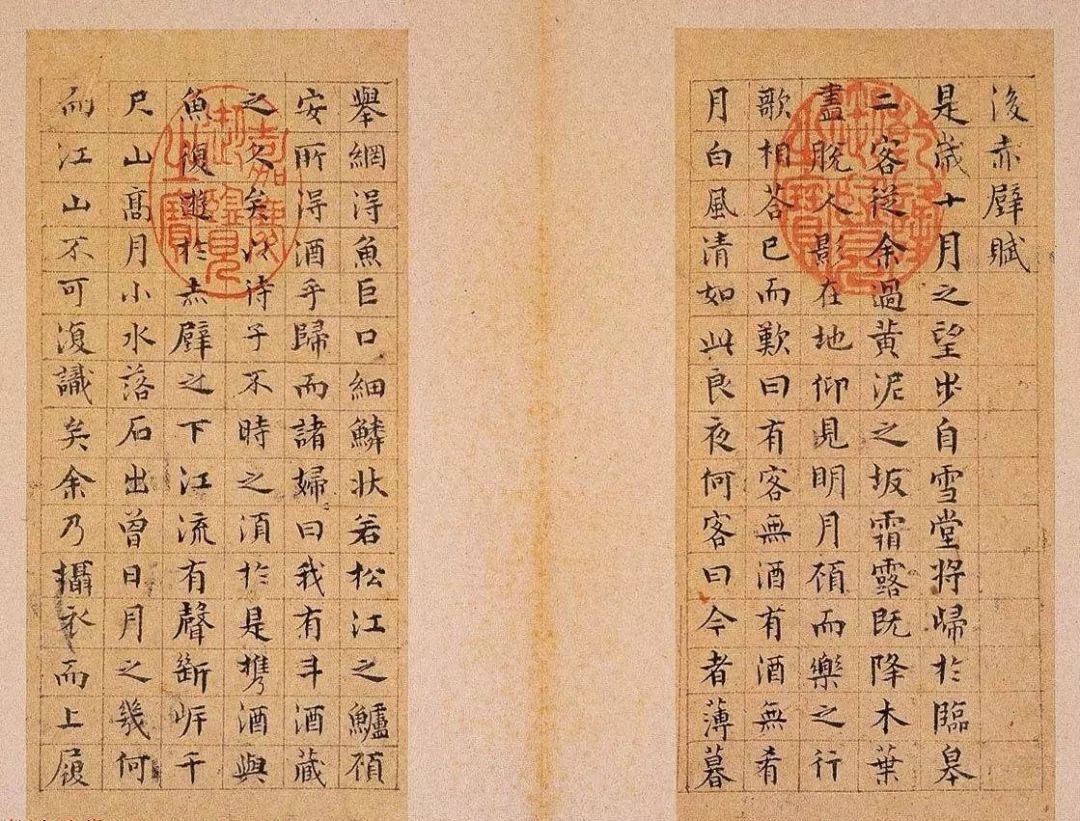 後赤壁賦
是歲十月之望步自雪堂將歸於臨皋
二客從余過黃泥之坂霜露既降木葉
盡脫人影在地仰見明月顧而樂之行
歌相答已而歎曰有客無酒有酒無肴
月白風清如此良夜何客曰今者薄暮
乾隆御覽之寶
舉網得魚巨口細鱗狀若松江之鱸顧
安所得酒乎歸而諸婦曰我有斗酒藏
之久矣以待子不時之須於是攜酒與
魚復遊於赤壁之下江流有聲斷岸千
尺山高月小水落石出曾日月之幾何
而江山不可復識矣余乃攝衣而上履
嘉慶御覽之寶